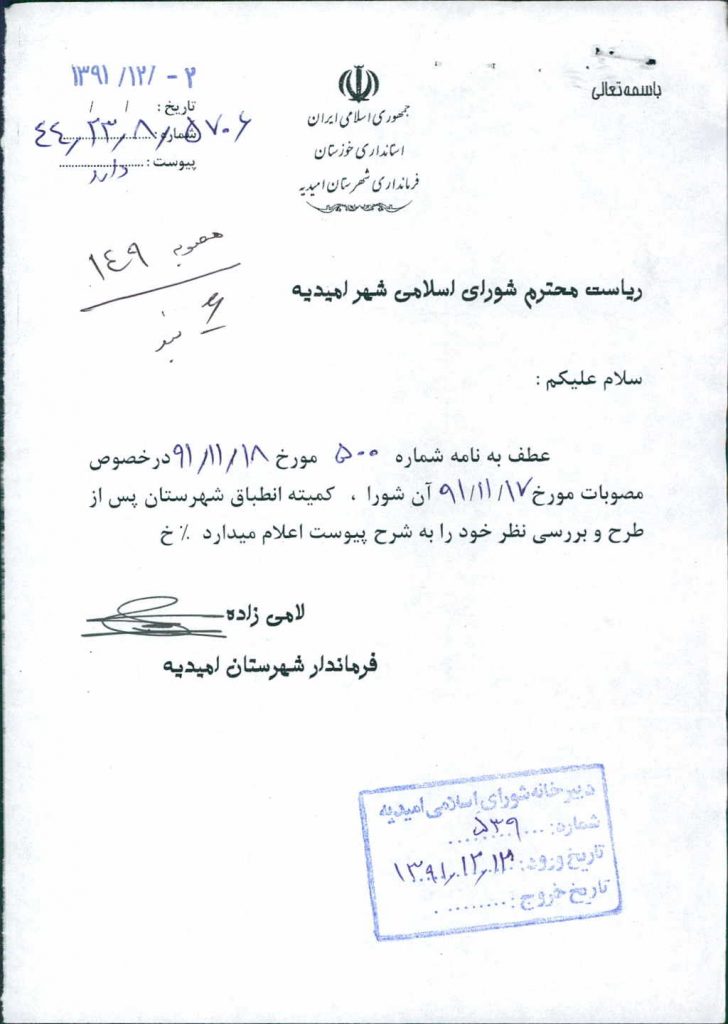 باسمه تعالی
جمهوری اسلامی ایران
استانداری خوزستان
فرمانداری شهرستان امیدیه
۱۳۹۱/۱۲/ -۲
تاریخ : / /
شماره : ۴۴/۲۳/۸/۵۷۰۶
پیوست : دارد
مصوبه ۱۴۹
ریاست محترم شورای اسلامی شهر امیدیه
سلام علیکم :
عطف به نامه شماره ۵۰۰ مورخ ۹۱/۱۱/۱۸ درخصوص
مصوبات مورخ ۹۱/۱۱/۱۷ آن شورا ، کمیته انطباق شهرستان پس از
طرح و بررسی نظر خود را به شرح پیوست اعلام میدارد ٪ خ
لامی زاده
فرماندار شهرستان امیدیه
دبیرخانه شورای اسلامی امیدیه
شماره: ۵۳۹
تاریخ ورود: ۱۳۹۱/۱۲/۱۲
تاریخ خروج: ........